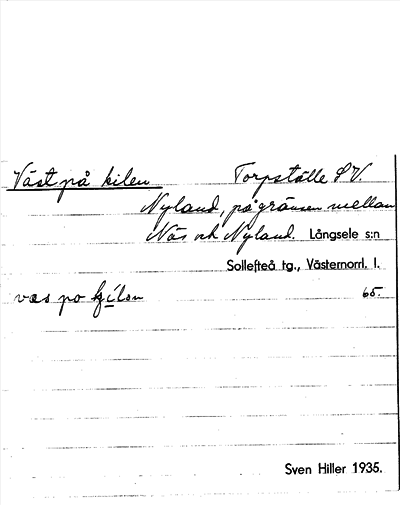 Väst på kilen Torpställe S V.
Nyland, på gränsen mellan
Näs och Nyland. Långsele s:n
Sollefteå tg., Västernorrl. l.
væs po kílən 65.
Sven Hiller 1935.